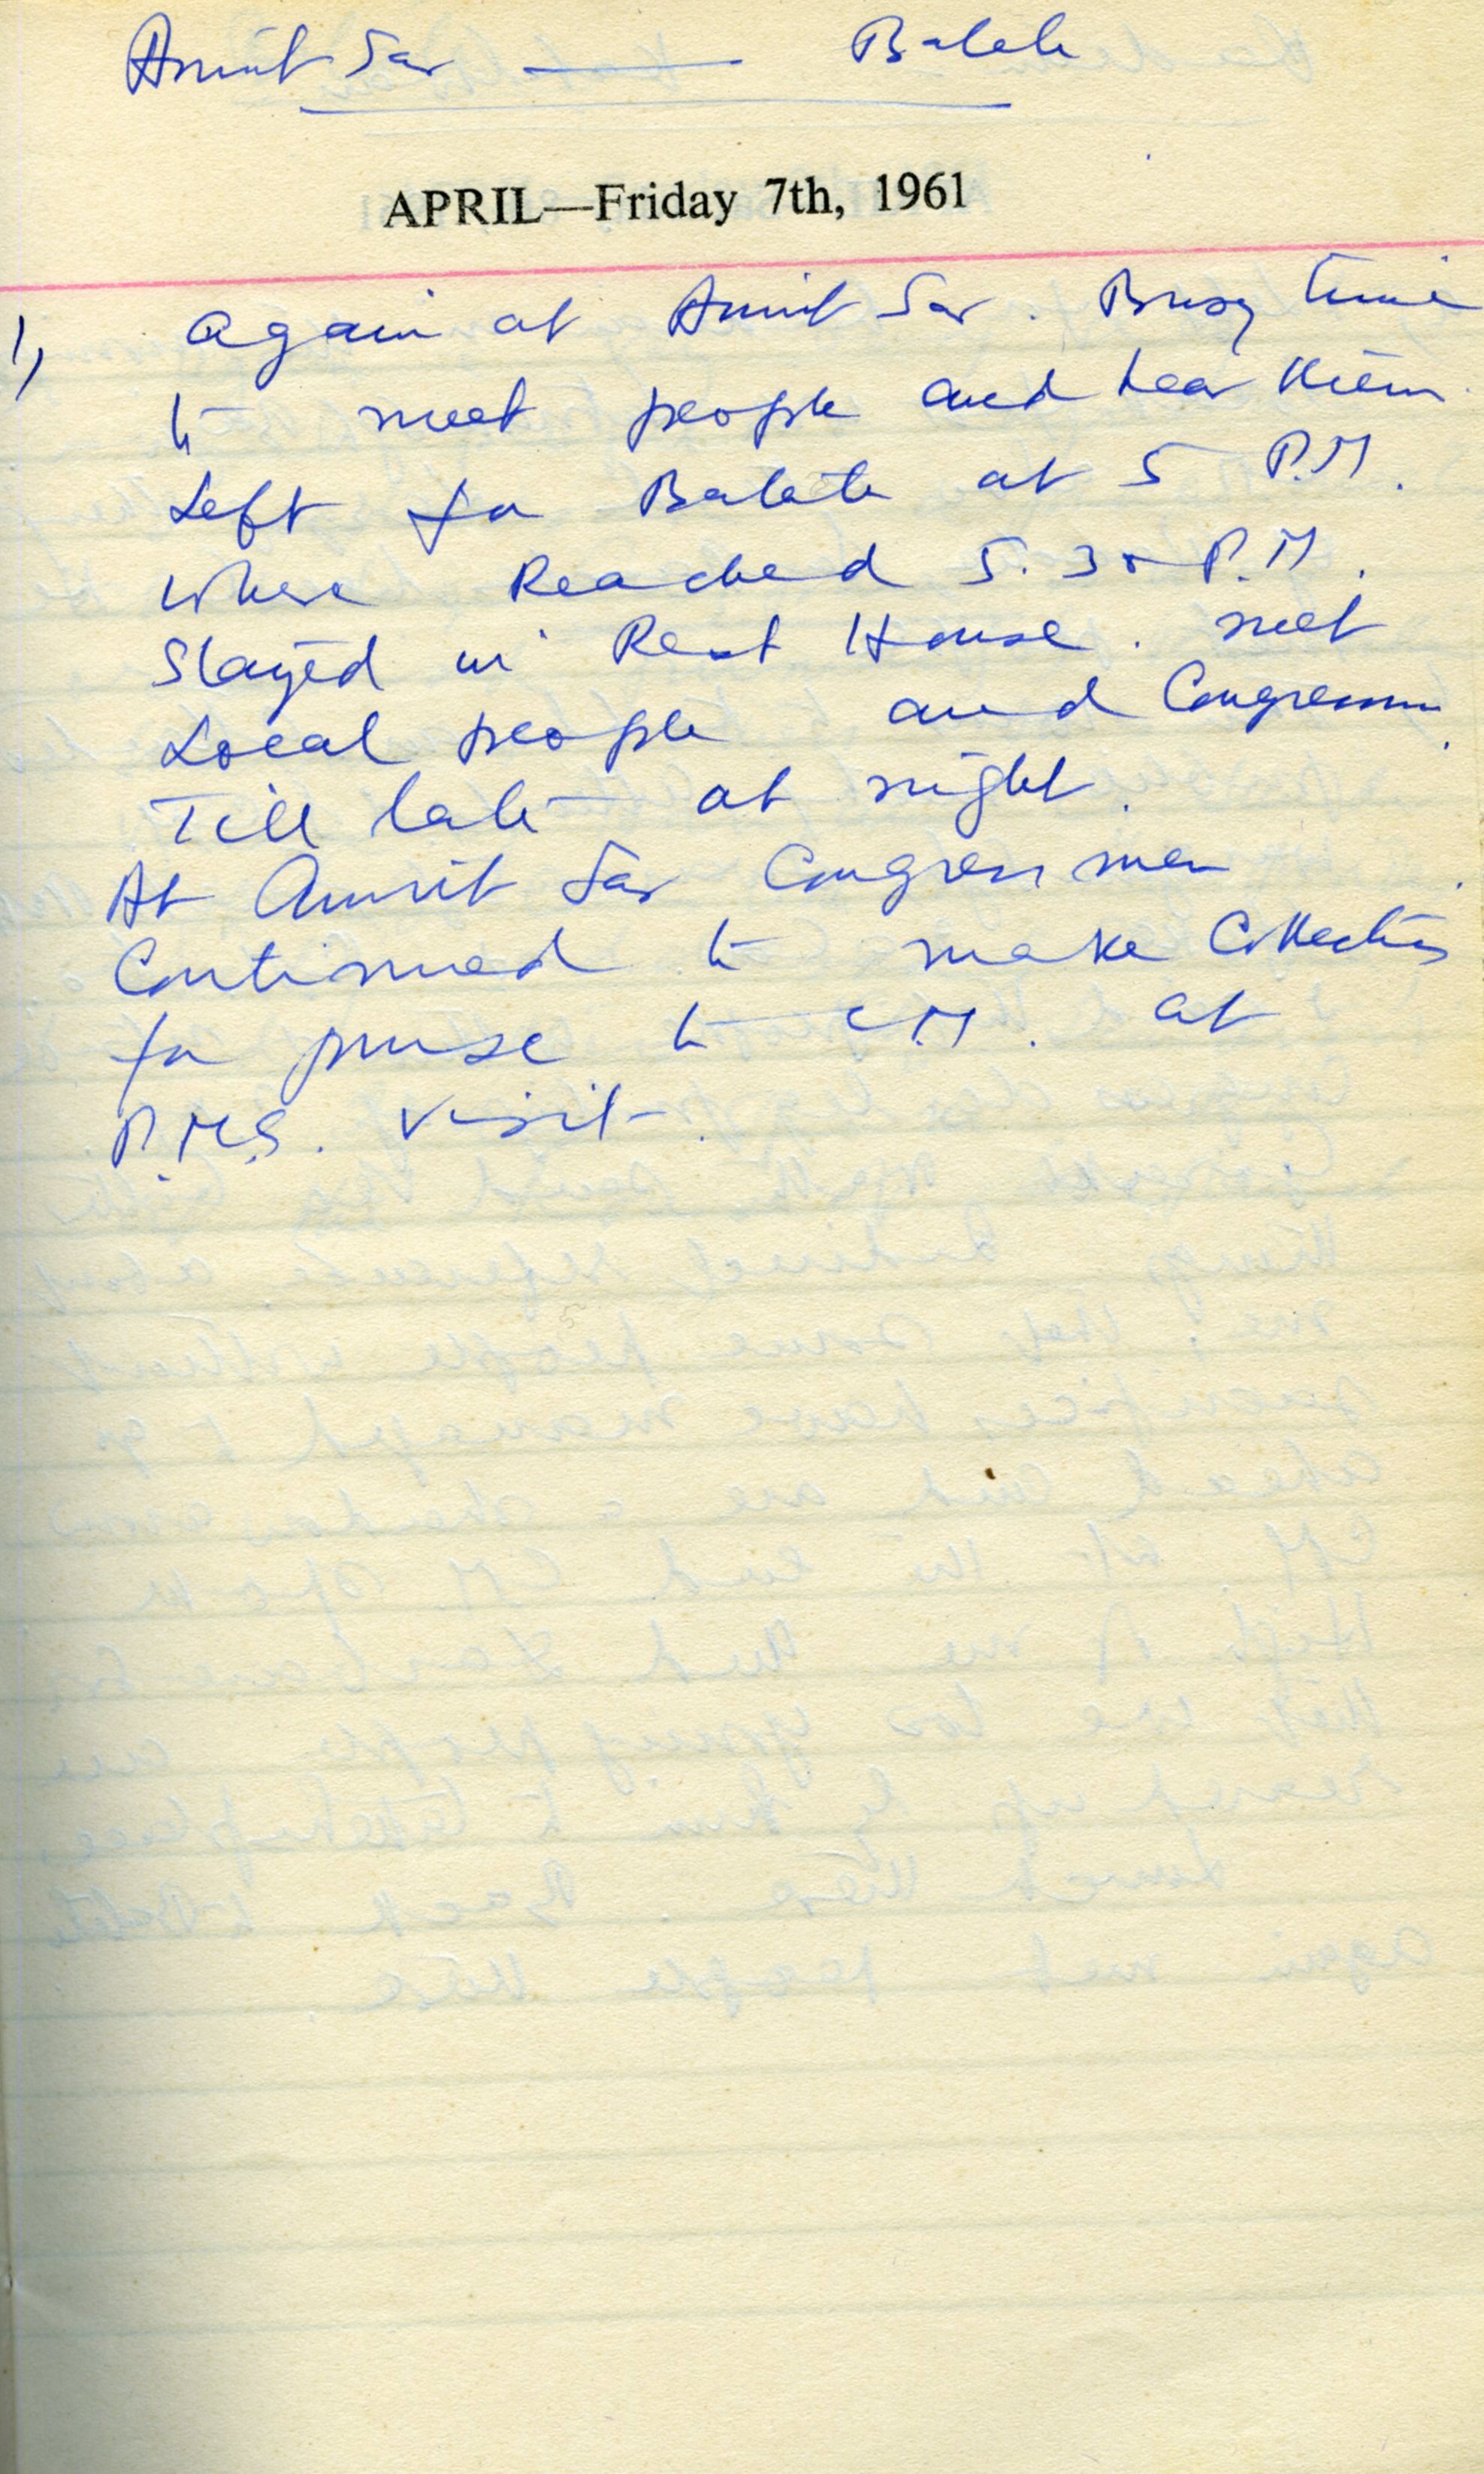 Amrit Sar — Batala
APRIL—Friday 7th, 1961
1) Again at Amrit Sar. Busy time
to meet people and hear them
Left for Batala at 5 P.M.
where Reached 5.30 P.M.
Stayed in Rest House. met
Local people and Congressmen
Till late at night.
At Amrit Sar Congress men
Continued to make Collections
for purse to C.M. at
P.M.S. visit.